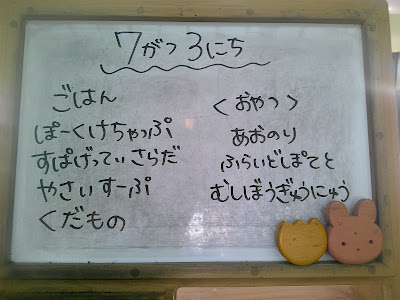 7がつ3にち
ごはん
ぽーくけちゃっぷ
すぱげってぃさらだ
やさいすーぷ
くだもの
〈おやつ〉
あおのり
ふらいどぽてと
むしぼうぎゅうにゅう